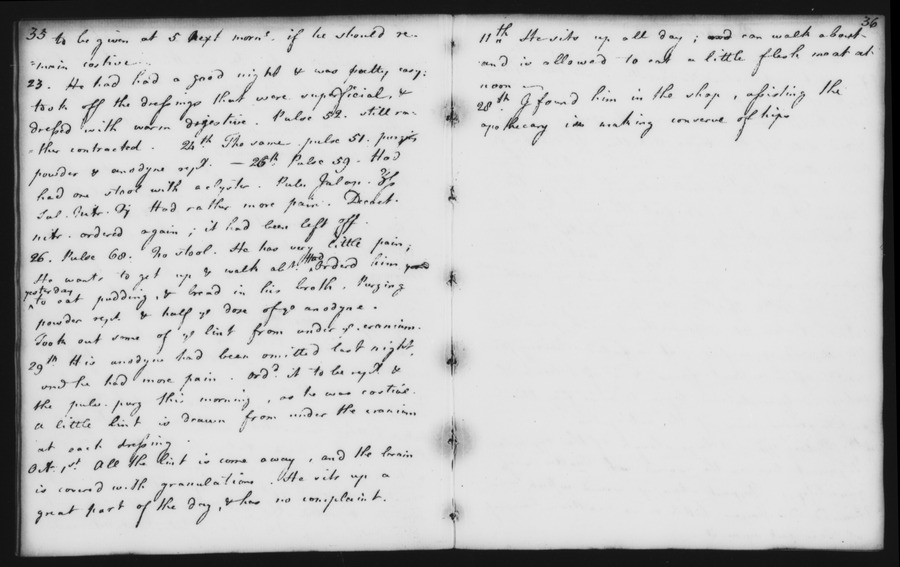 33
to be given at 5 next morng. if he should re-
=main costive.
23. He had had a good night & was pretty easy;
took off the dressings that were superficial, &
dressed with warm digestive. Pulse 52. still ra-
=ther contracted. 24th The same. pulse 51. purging
powder & anodyne repd. — 26th Pulse 59. Had
had one stool with a clyster. Pulv. Jalap. ʒſs
Sal. Nitr. Had rather more pain. Decoct.
nitr. ordered again; it had been left off.
26. Pulse 60. No stool. He has very little pain;
He wants to get up & walk abt. Had orderd him
yesterday
to eat pudding, & bread in his broth. Purging
powder repd. & half ye dose of ye anodyne.
Took out some of ye lint from under ye cranium.
29th His anodyne had been omitted last night,
and he had more pain. Ordd. it to be repd. &
the pulv. purg this morning, as he was costive.
a little lint is drawn from under the cranium
at each dressing.
Oct. 1st. All the lint is come away, and the brain
is covered with granulations. He sits up a
great part of the day, & has no complaint.
36
11th He sits up all day; and can walk about
and is allowed to eat a little flesh meat at
noon
28th I found him in the shop, assisting the
apothecary in making conserve of hips